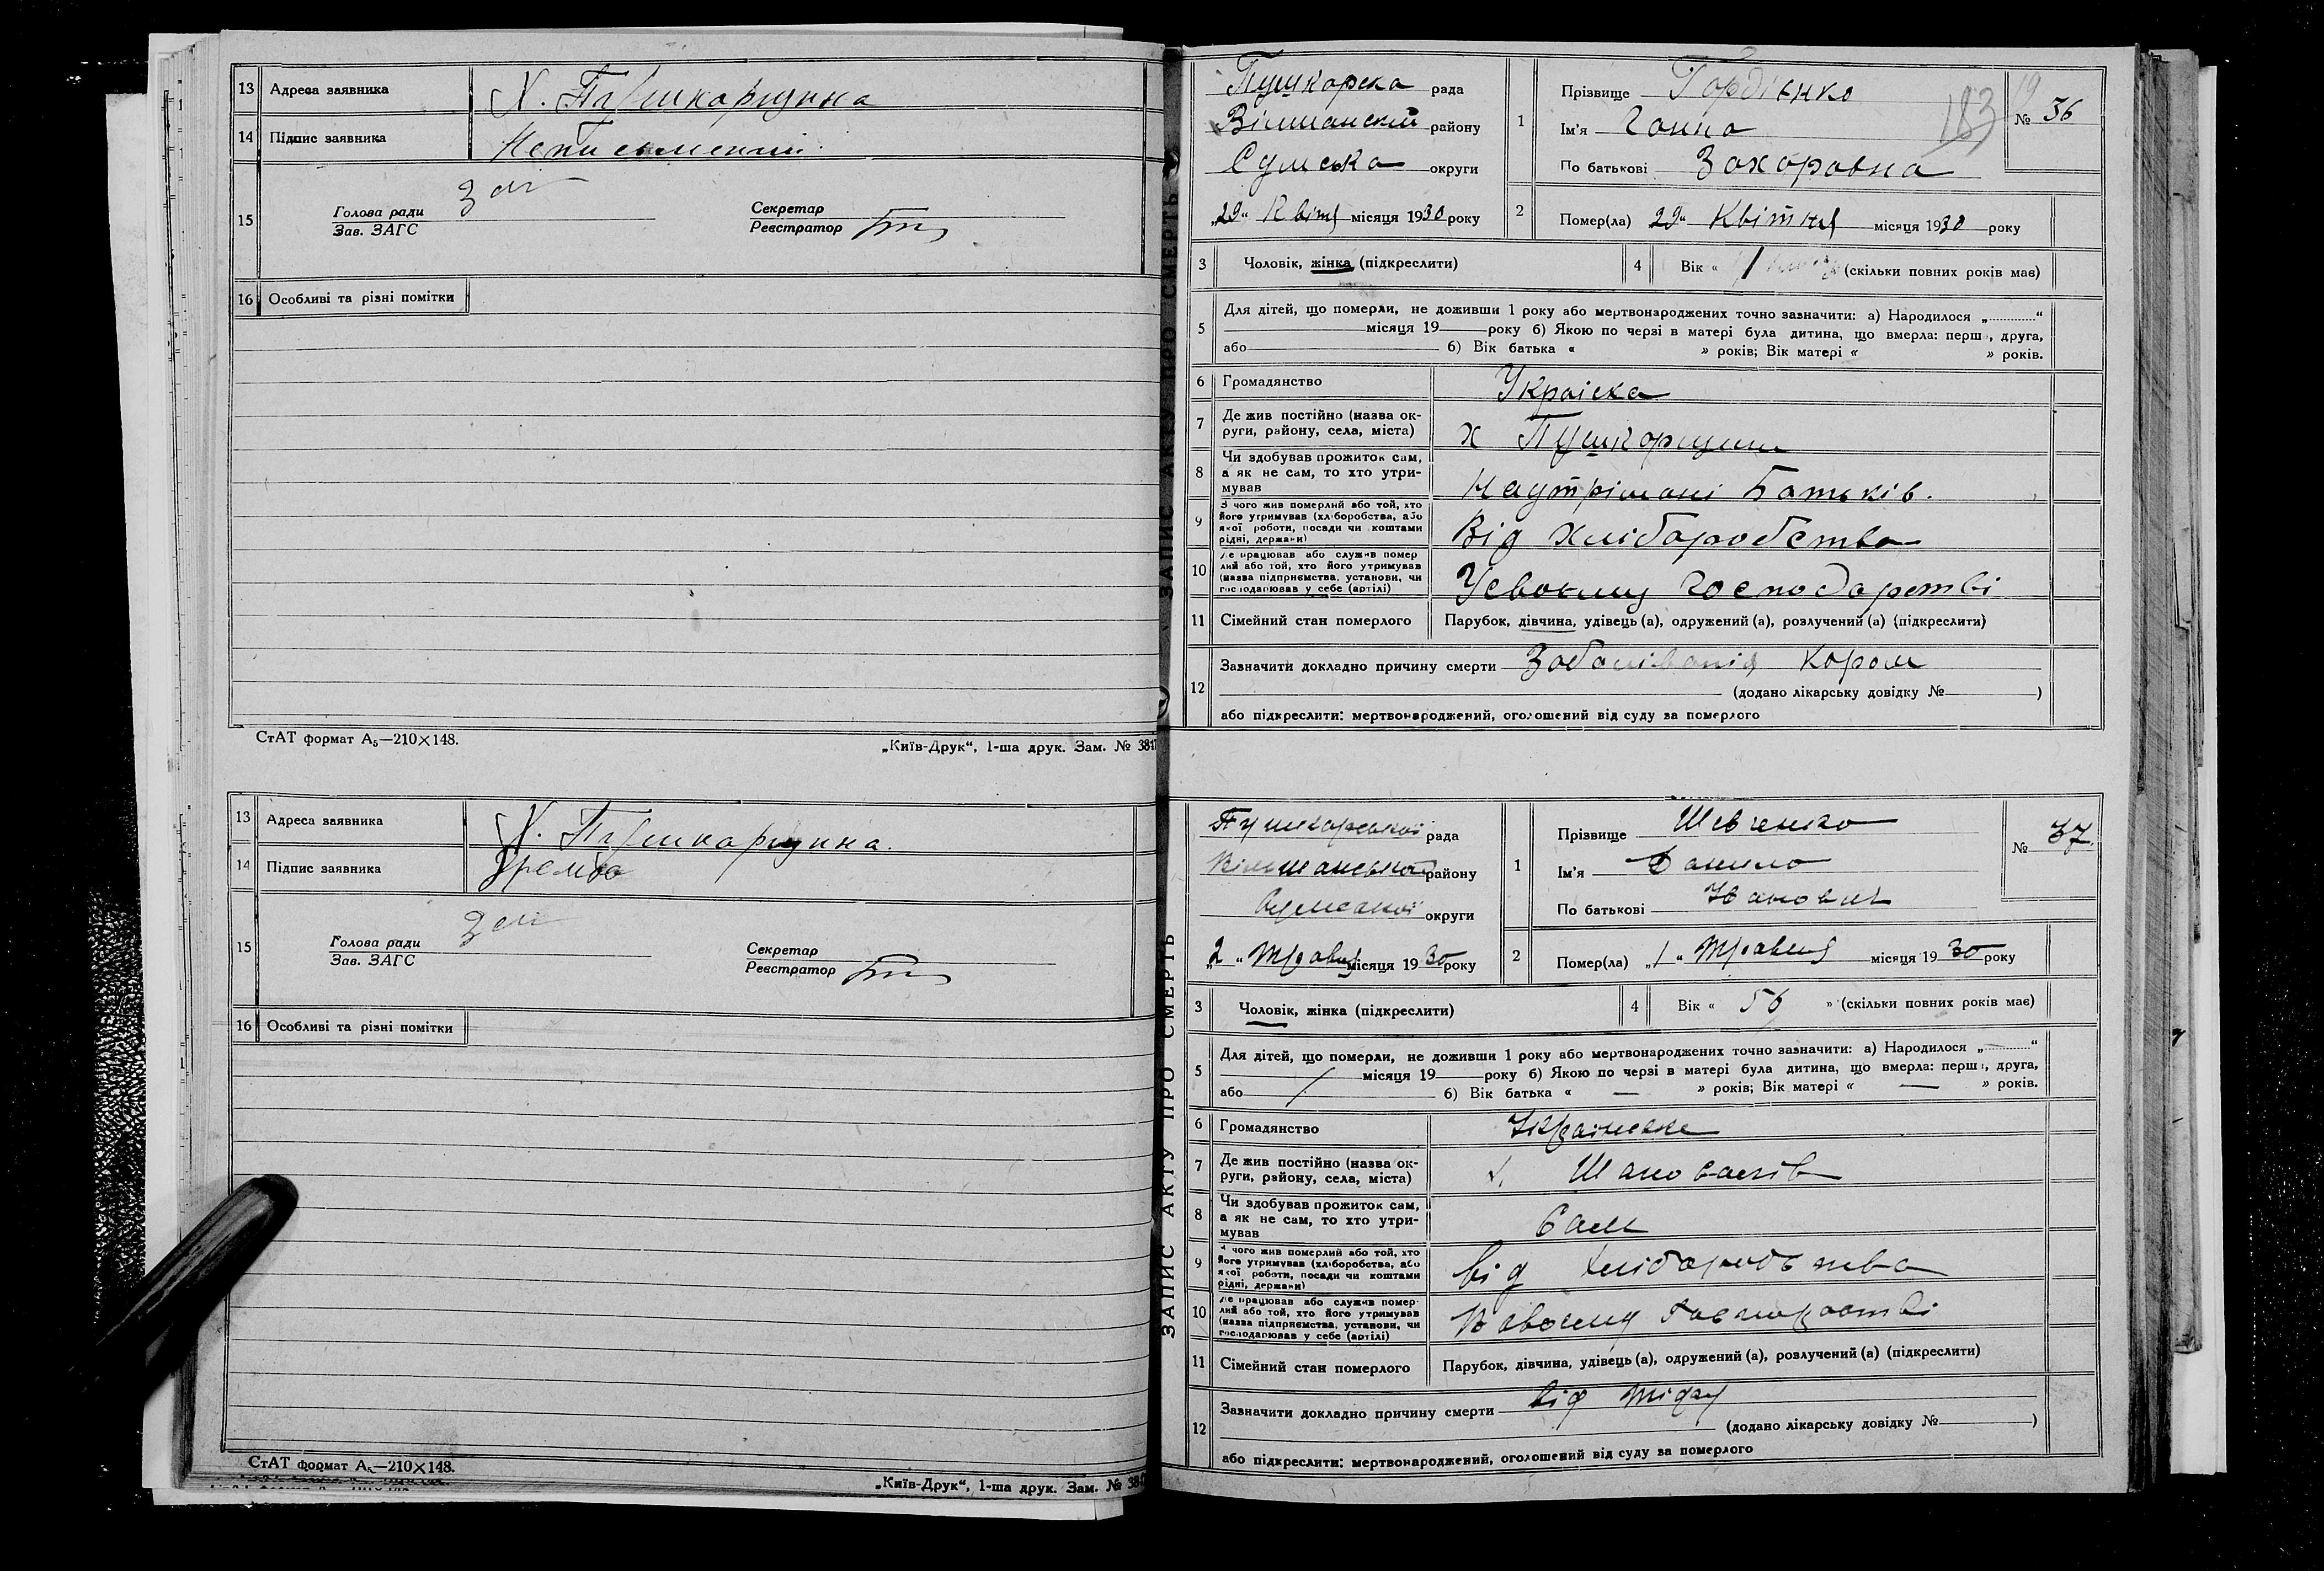 13 Адреса заявника Х. Пушкарщина
14 Підпис заявника Неписьменний
15 Голова ради
Зав. ЗАГС
Секретар
Реєстратор
16 Особливі та різні помітки
СтАТ формат А₅—210×148.
„Київ-Друк“, 1-ша друк. Зам. № 38
13 Адреса заявника Х. Пушкарщина.
14 Підпис заявника
15 Голова ради
Зав. ЗАГС
Секретар
Реєстратор
16 Особливі та різні помітки
СтАТ формат А₅—210×148.
„Київ-Друк“, 1-ша друк. Зам. № 38
ЗАПИС АКТУ ПРО СМЕРТЬ
Пушкарска рада
Вільшанский району
Сумська округи
„29“ Квітня місяця 1930 року
1 Прізвище Гордієнко
Ім'я Ганна
По батькові Захоровна
183
19
№ 36
2 Помер(ла) 29“ Квітня місяця 1930 року
3 Чоловік, жінка (підкреслити)
4 Вік « (скільки повних років має)
5 Для дітей, що померли, не доживши 1 року або мертвонароджених точно зазначити: а) Народилося „............“
місяця 19 року б) Якою по черзі в матері була дитина, що вмерла: перша, друга,
або б) Вік батька « » років; Вік матері « » років.
6 Громадянство Украіска
7 Де жив постійно (назва округи, району, села, міста) х Пушкорщини
8 Чи здобував прожиток сам, а як не сам, то хто утримував Наутрімані Батьків.
9 З чого жив померлий або той, хто його утримував (хліборобства, або якої роботи, посади чи коштами рідні, держави) Від хліборобства
10 Де працював або служив померлий або той, хто його утримував (назва підприємства, установи, чи господарював у себе (артілі) Усвоєму господаретві
11 Сімейний стан померлого Парубок, дівчина, удівець (а), одружений (а), розлучений (а) (підкреслити)
12 Зазначити докладно причину смерти Заболіванія Кором
(додано лікарську довідку № )
або підкреслити: мертвонароджений, оголошений від суду за померлого
ЗАПИС АКТУ ПРО СМЕРТЬ
Пушкарської рада
Вільшанської району
Сумської округи
„2“ Травня місяця 1930 року
1 Прізвище Шевченко
Ім'я Данило
По батькові Іванович
№ 37.
2 Помер(ла) „1“ Травня місяця 1930 року
3 Чоловік, жінка (підкреслити)
4 Вік « 56 » (скільки повних років має)
5 Для дітей, що померли, не доживши 1 року або мертвонароджених точно зазначити: а) Народилося „............“
місяця 19 року б) Якою по черзі в матері була дитина, що вмерла: перша, друга,
або б) Вік батька « — » років; Вік матері « — » років.
6 Громадянство Українське
7 Де жив постійно (назва округи, району, села, міста) х.
8 Чи здобував прожиток сам, а як не сам, то хто утримував Сам
9 З чого жив померлий або той, хто його утримував (хліборобства, або якої роботи, посади чи коштами рідні, держави) від хліборобства
10 Де працював або служив померлий або той, хто його утримував (назва підприємства, установи, чи господарював у себе (артілі)
11 Сімейний стан померлого Парубок, дівчина, удівець (а), одружений (а), розлучений (а) (підкреслити)
12 Зазначити докладно причину смерти від
(додано лікарську довідку № )
або підкреслити: мертвонароджений, оголошений від суду за померлого